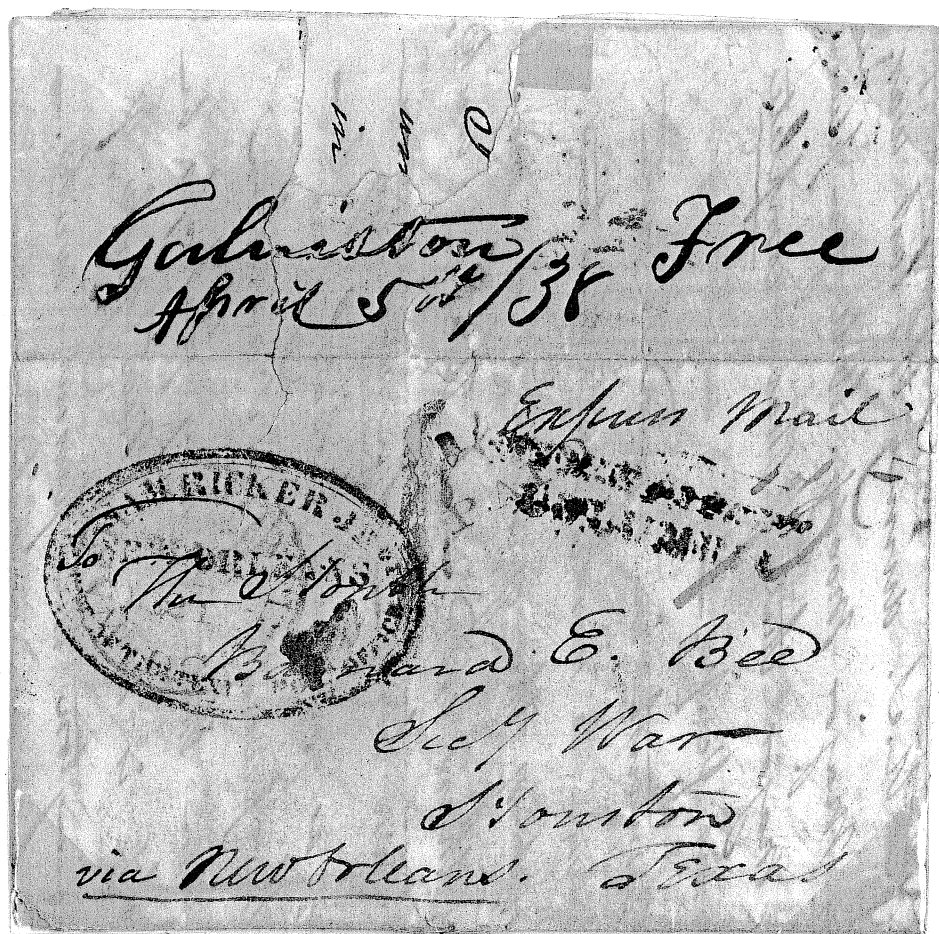 Galveston Free
April 5th/38
Express Mail
SAM RICKER JR
NEW ORLEANS
To
The Honble
Barnard E. Bee
Secy War
Houston
via New Orleans. Texas